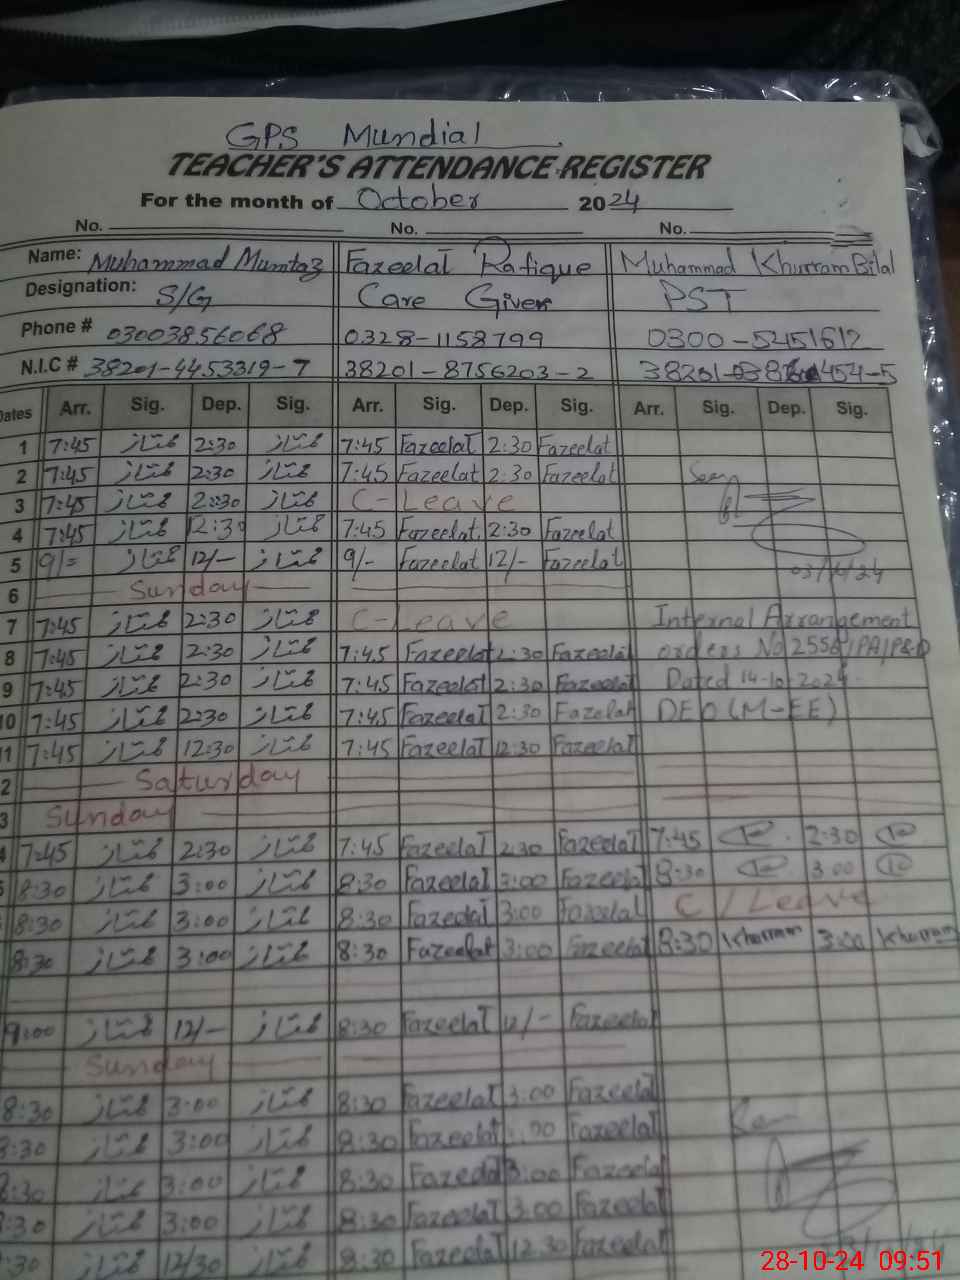 GPS Mundial
TEACHER'S ATTENDANCE REGISTER
For the month of October 2024
No. No. No.
Name: Muhammad Mumtaz Fazeelat Rafique Muhammad Khurram Bilal
Designation: S/G Care Giver PST
Phone # 03003856068 0328-1158799 0300-5451612
N.I.C # 38201-4453319-7 38201-8756203-2
Dates Arr. Sig. Dep. Sig. Arr. Sig. Dep. Sig. Arr. Sig. Dep. Sig.
1 7:45 ممتاز 2:30 ممتاز 7:45 Fazeelat 2:30 Fazeelat
2 7:45 ممتاز 2:30 ممتاز 7:45 Fazeelat 2:30 Fazeelat Seen
3 7:45 ممتاز 2:30 ممتاز C-Leave
4 7:45 ممتاز 12:30 ممتاز 7:45 Fazeelat 2:30 Fazeelat
5 9/= ممتاز 12/- ممتاز 9/- Fazeelat 12/- Fazeelat
6 Sunday
7 7:45 ممتاز 2:30 ممتاز C-Leave Internal Arrangement
8 7:45 ممتاز 2:30 ممتاز 7:45 Fazeelat 2:30 Fazeelat orders No 2556/PA/P&D
9 7:45 ممتاز 2:30 ممتاز 7:45 Fazeelat 2:30 Fazeelat Dated 14-10-2024
10 7:45 ممتاز 2:30 ممتاز 7:45 Fazeelat 2:30 Fazelat DEO (M-EE)
11 7:45 ممتاز 12:30 ممتاز 7:45 Fazeelat 12:30 Fazeelat
2 Saturday
3 Sunday
4 7:45 ممتاز 2:30 ممتاز 7:45 Fazeelat 2:30 Fazeelat 7:45 2:30
5 8:30 ممتاز 3:00 ممتاز 8:30 Fazeelat 3:00 Fazeelat 8:30 3:00
8:30 ممتاز 3:00 ممتاز 8:30 Fazeelat 3:00 Fazeelat C/Leave
8:30 ممتاز 3:00 ممتاز 8:30 Fazeelat 3:00 Fazeelat 8:30 Khurram 3:00 Khurram
9:00 ممتاز 12/- ممتاز 8:30 Fazeelat 12/- Fazeelat
Sunday
8:30 ممتاز 3:00 ممتاز 8:30 Fazeelat 3:00 Fazeelat
8:30 ممتاز 3:00 ممتاز 8:30 Fazeelat Fazeelat
8:30 ممتاز 3:00 ممتاز 8:30 Fazeelat 3:00 Fazeelat
:30 ممتاز 3:00 ممتاز 8:30 Fazeelat 3:00 Fazeelat
:30 ممتاز 12/30 ممتاز 8:30 Fazeelat 12:30 Fazeelat
28-10-24 09:51